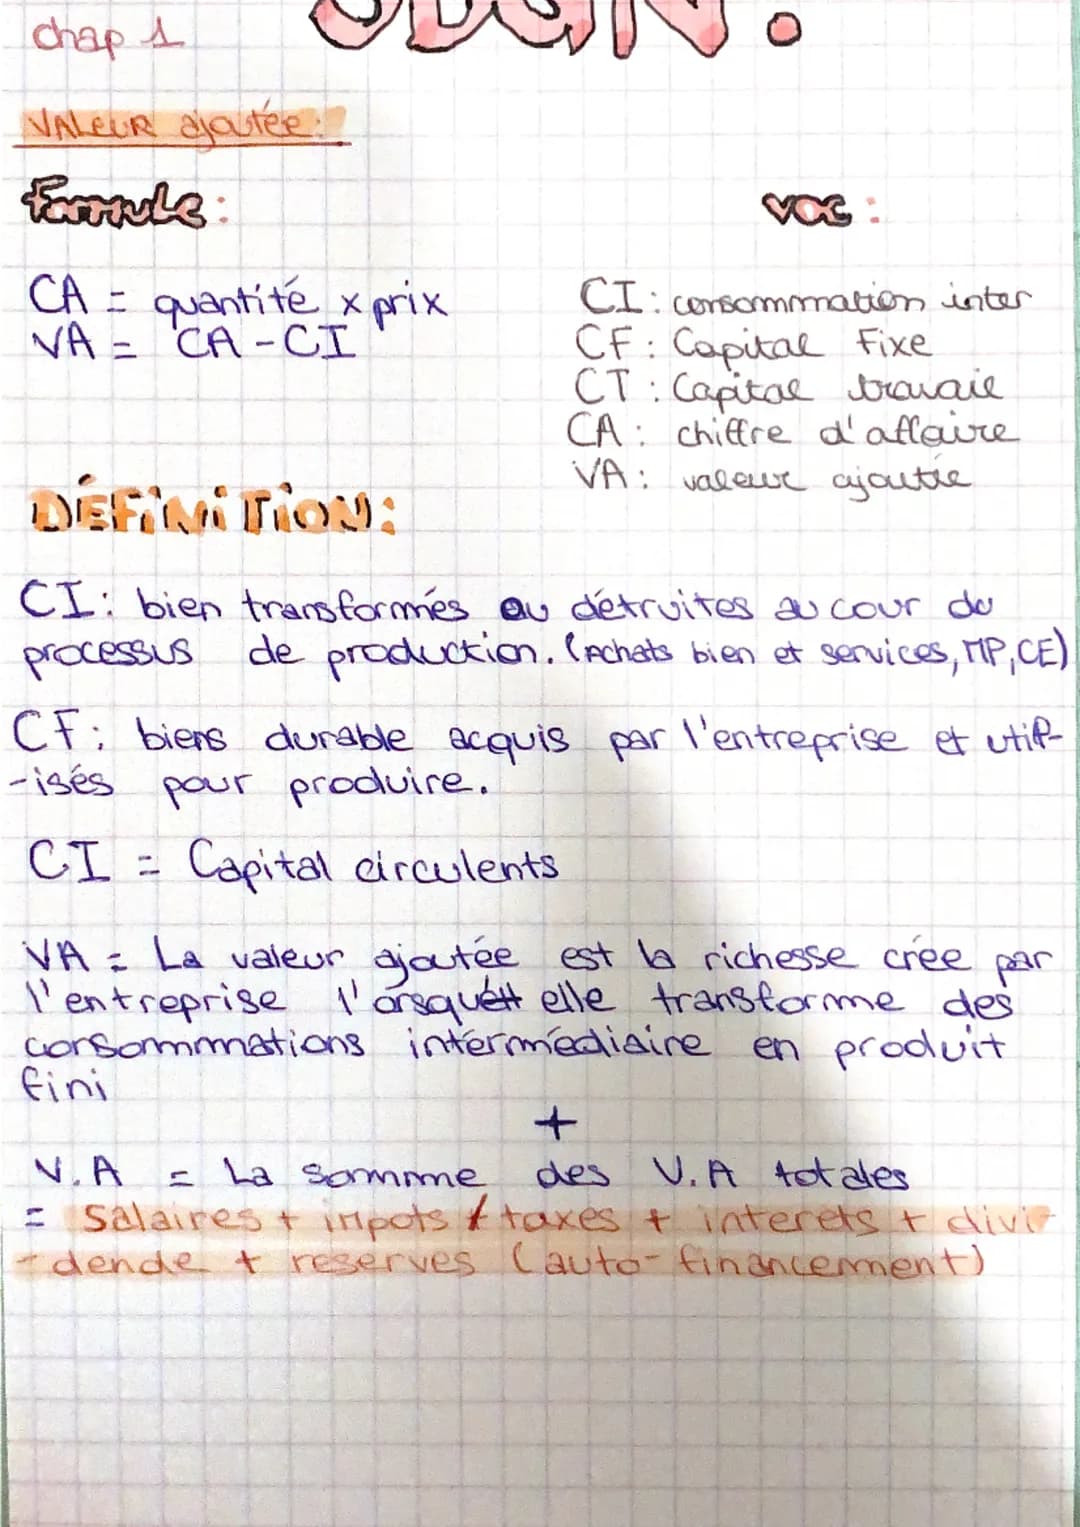 chap 1
SDGN:
VALEUR ajoutée:
formule:
voc:
CA = quantité x prix
VA = CA - CI
CI: consommation inter
CF: Capital Fixe
CT: Capital travaie
CA: chiffre d'affaire
VA: valeur ajoutée
DÉFINITION:
CI: bien transformés ou détruites au cour du
processus de production. (Achats bien et services, MP, CE)
CF: biens durable acquis par l'entreprise et util-
-isés pour produire.
CI = Capital circulents
VA = La valeur ajoutée est la richesse crée par
l'entreprise l'orsquétt elle transforme des
consommations intermédiaire en produit
fini
+
V.A = La somme des V.A totales
= Salaires + impots / taxes + interets + divi-
-dende + reserves (auto-financement)